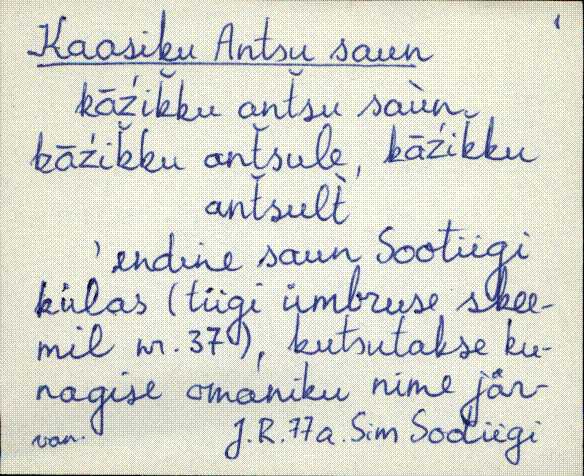 Kaasiku Antsu saun
kāźik̆ku ant̆su saùn.
kāźik̆ku ant̆sule, kāźik̆ku
ant̆sult̀
'endine saun Sootiigi
külas (tiigi ümbruse skee-
mil nr. 37), kutsutakse ku-
nagise omaniku nime jär-
van. J.R. 77a. Sim Sootiigi